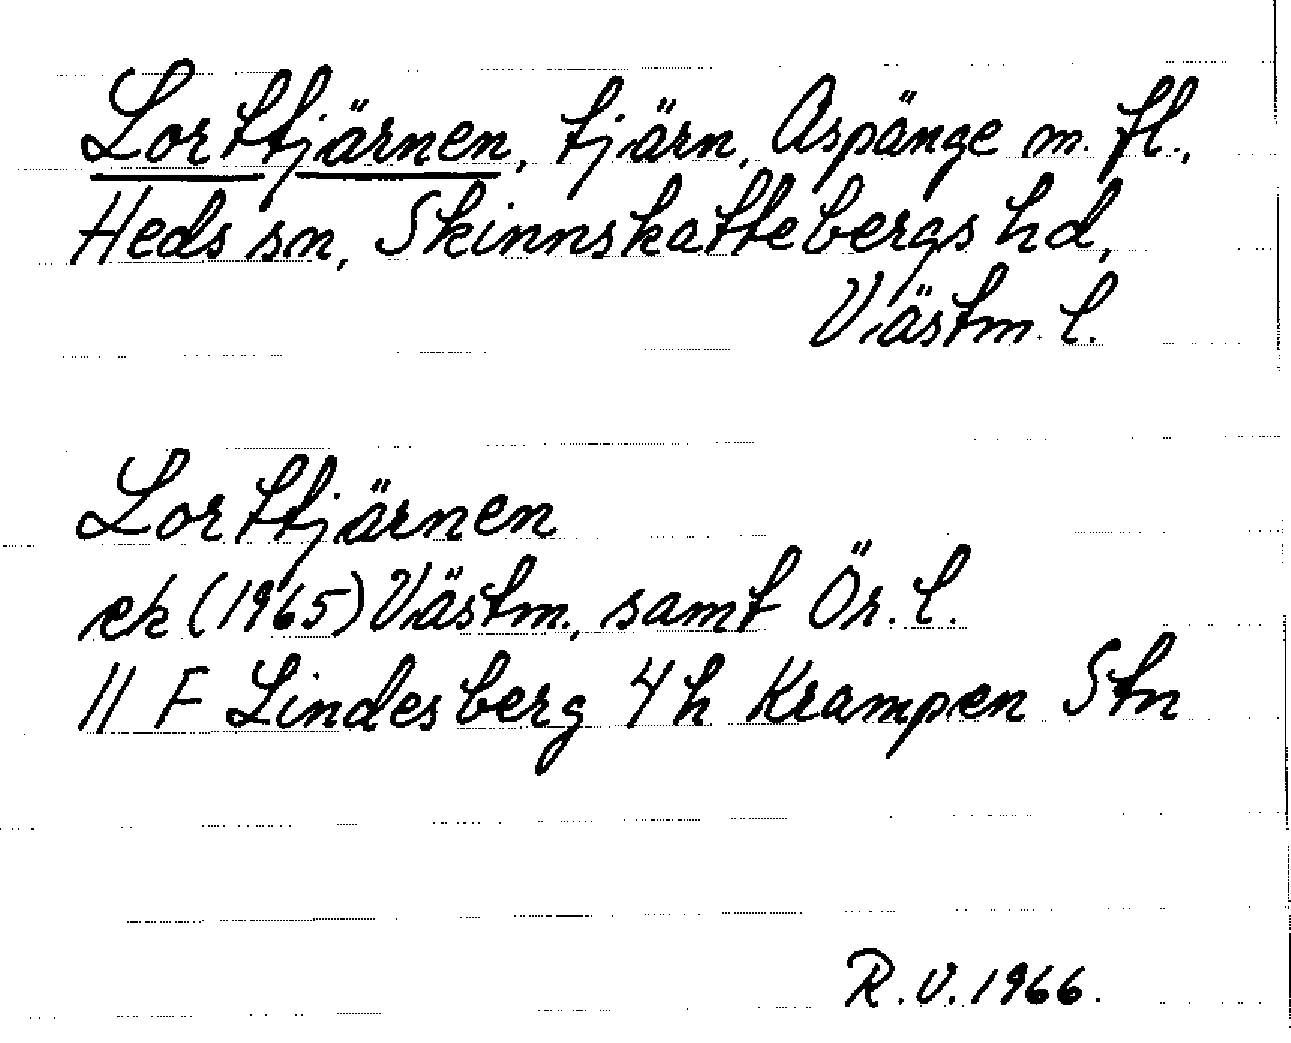 Lorttjärnen, tjärn, Aspänge m. fl.,
Heds sn, Skinnskattebergs hd,
Västm. l.
Lorttjärnen
ek (1965) Västm., samt Ör. l.
11 F Lindesberg 4h Krampen Stn
R.V. 1966.